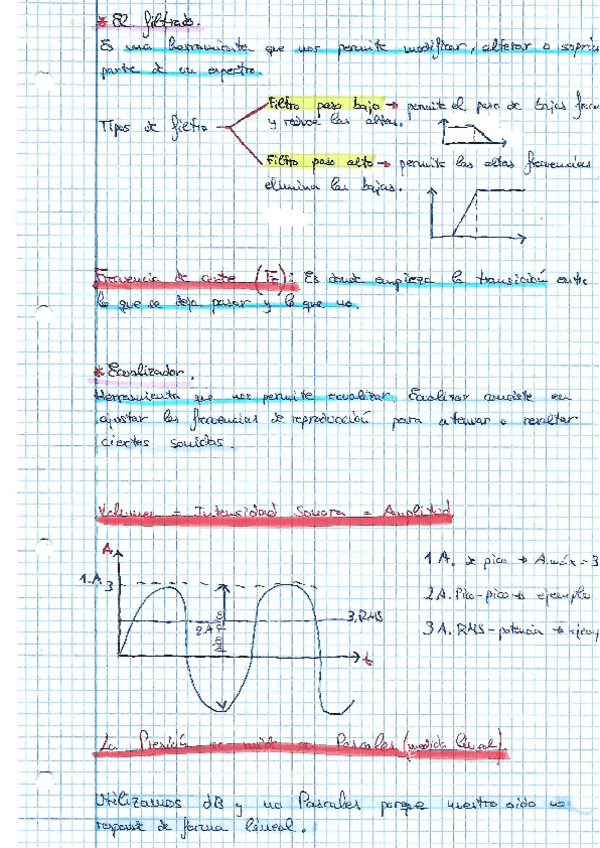 * El filtrado.
Es una herramienta que nos permite modificar, alterar o suprim
parte de un espectro.
Filtro paso bajo → permite el paso de bajas frecu
y reduce las altas.
Tipos de filtro
Filtro paso alto → permite las altas frecuencias
elimina las bajas.
Frecuencia de corte (Fc): Es donde empieza la transición entre
lo que se deja pasar y lo que no.
* Ecualizador.
Herramienta que nos permite ecualizar. Ecualizar consiste en
ajustar las frecuencias de reproducción para atenuar o resaltar
ciertos sonidos.
Volumen = Intensidad Sonora = Amplitud
A
1.A 3
2A pico pico
3.RMS
t
1 A. de pico → A.máx = 3
2 A. Pico-pico → ejemplo
3 A. RMS-potencia → ejemp
La Presión se mide en Pascales (medida lineal).
Utilizamos dB y no Pascales porque nuestro oído no
responde de forma lineal.